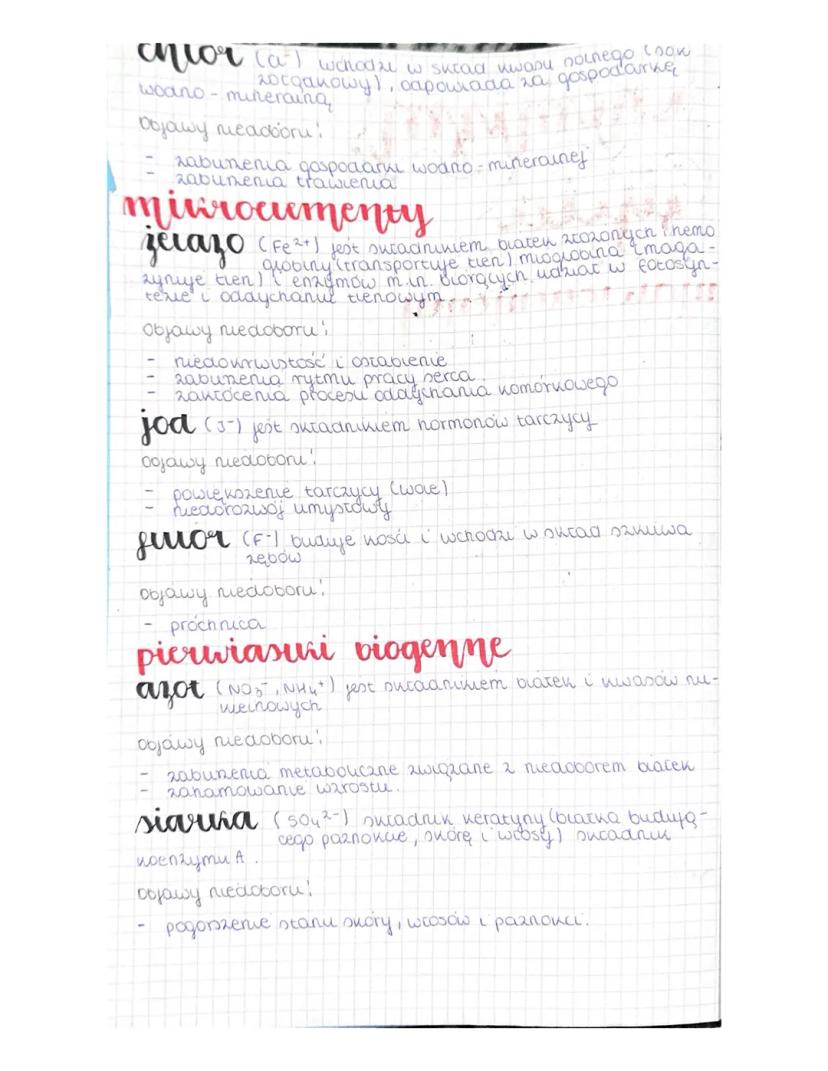 chlor (Cl-) wchodzi w skład kwasu solnego (sok
żołądkowy), odpowiada za gospodarkę
wodno-mineralną
objawy niedoboru:
- zaburzenia gospodarki wodno-mineralnej
- zaburzenia trawienia
mikroelementy
żelazo (Fe²⁺) jest składnikiem białek złożonych: hemo
globiny (transportuje tlen) mioglobina (maga-
zynuje tlen) i enzymów m.in. biorących udział w fotosyn-
tezie i oddychaniu tlenowym.
objawy niedoboru:
- niedokrwistość i osłabienie
- zaburzenia rytmu pracy serca
- zakłócenia procesu oddychania komórkowego
jod (J-) jest składnikiem hormonów tarczycy
objawy niedoboru:
- powiększenie tarczycy (wole)
- niedorozwój umysłowy
fluor (F-) buduje kości i wchodzi w skład szkliwa
zębów
objawy niedoboru:
- próchnica
pierwiastki biogenne
azot (NO₃⁻, NH₄⁺) jest składnikiem białek i kwasów nu-
kleinowych
objawy niedoboru:
- zaburzenia metaboliczne związane z niedoborem białek
- zahamowanie wzrostu.
siarka (SO₄²⁻) składnik keratyny (białka budują-
cego paznokcie, skórę i włosy) składnik
koenzymu A.
objawy niedoboru:
- pogorszenie stanu skóry, włosów i paznokci.